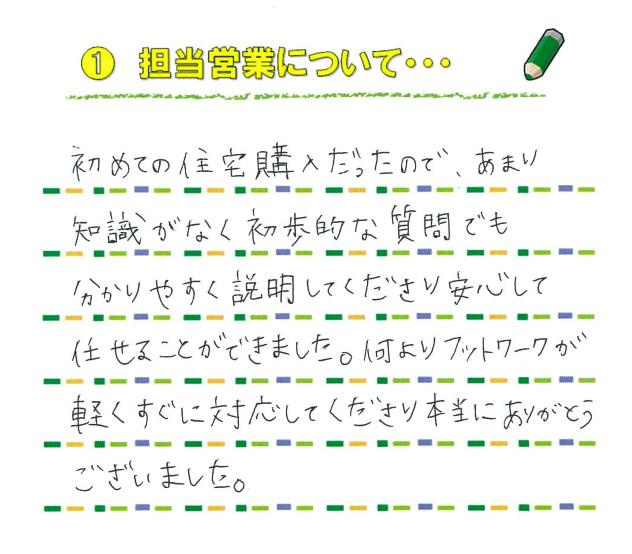 ① 担当営業について・・・
初めての住宅購入だったので、あまり
知識がなく初歩的な質問でも
分かりやすく説明してくださり安心して
任せることができました。何よりフットワークが
軽くすぐに対応してくださり本当にありがとう
ございました。